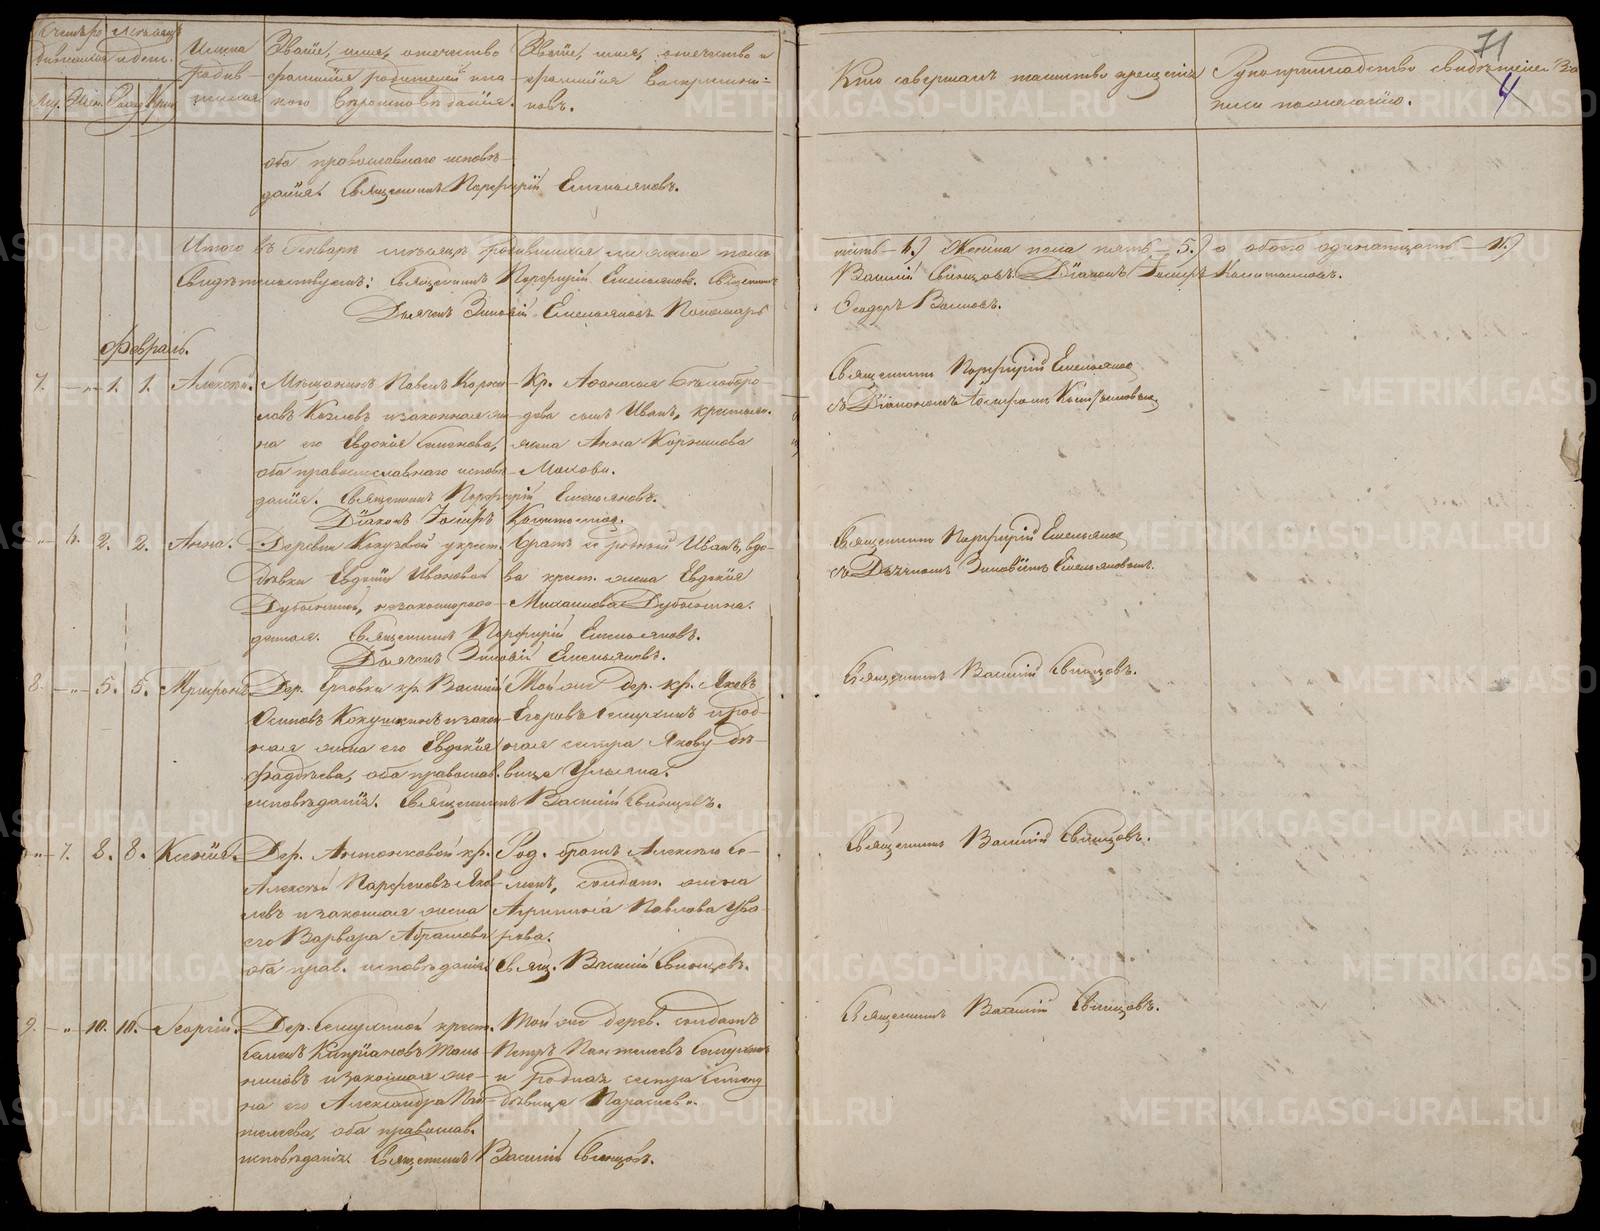 Счетъ ро- Мѣсяцъ
дившихся и день.
Имена родив-шихся
Муж. Жен. Рожд. Крещ.
Званіе, имя, отечество
фамилія родителей и ка-
кого вѣроисповѣданія.
Званіе, имя, отечество и
фамилія воспріемни-
ковъ.
Кто совершалъ таинство крещенія
Рукоприкладство свидѣтелей за-
писи по желанію.
71
4
оба православнаго исповѣ-
данія. Священникъ Порфирій Емельяновъ.
Итого въ Генварѣ мѣсяцѣ родившихся мужеска пола
шесть — 6.) Женска пола пять — 5.) а обоего одинатцать — 11.)
Свидѣтельствуемъ: Священникъ Порфирій Емельяновъ. Священникъ
Василій Свинцовъ. Діаконъ Іосифъ
Дьячекъ Зиновій Емельяновъ Пономарь
Ѳеодоръ
Февраль.
7. — „ — 1. 1. Алексѣй. Мѣщанинъ Павелъ Корни-
ловъ Козловъ и законная же-
на его Евдокія Семенова,
оба православнаго исповѣ-
данія. Священникъ Порфирій Емельяновъ.
Діаконъ Іосифъ
Кр. Аѳанасія Бѣлобро-
дова сынъ Иванъ, крестьян.
жена Анна Корнилова
Махова.
Священникъ Порфирій Емельяновъ
съ Діакономъ Іосифомъ
— „ — 6. 2. 2. Анна. Деревни у крест.
дѣвки Евдокіи Ивановой
незаконнорож-
денная. Священникъ Порфирій Емельяновъ.
Дьячекъ Зиновій Емельяновъ.
Братъ ее родный Иванъ, вдо-
ва крест. жена Евдокія
Михайлова Дубынина.
Священникъ Порфирій Емельяновъ
съ Дьячкомъ Зиновіемъ Емельяновымъ.
8. — „ — 5. 5. Трифонъ. Дер. кр. Василій
Осиповъ Кокушкинъ и закон-
ная жена его Евдокія
Фадѣева, оба православ.
исповѣданія. Священникъ Василій Свинцовъ.
Той же дер. кр. Яковъ
Егоровъ и род-
ная сестра Якову дѣ-
вица Ульяна.
Священникъ Василій Свинцовъ.
— „ — 7. 8. 8. Ксенія. Дер. Антоновой кр.
Алексѣй Парфеновъ Яков-
левъ и законная жена
его Варвара Абрамова
оба прав. исповѣданія. Свящ. Василій Свинцовъ.
Род. братъ Алексѣю Се-
менъ, солдат. жена
Агрипина Павлова Ува-
рова.
Священникъ Василій Свинцовъ.
9. — „ 10. 10. Георгій. Дер. Семухиной крест.
Семенъ Кипріановъ
и законная же-
на его Александра Пан-
телеева, оба православ.
исповѣданія. Священникъ Василій Свинцовъ.
Той же дерев. солдатъ
Петръ Пантелеевъ Семухинъ
и родная сестра Семену
дѣвица Параскева.
Священникъ Василій Свинцовъ.
METRIKI.GASO-URAL.RU